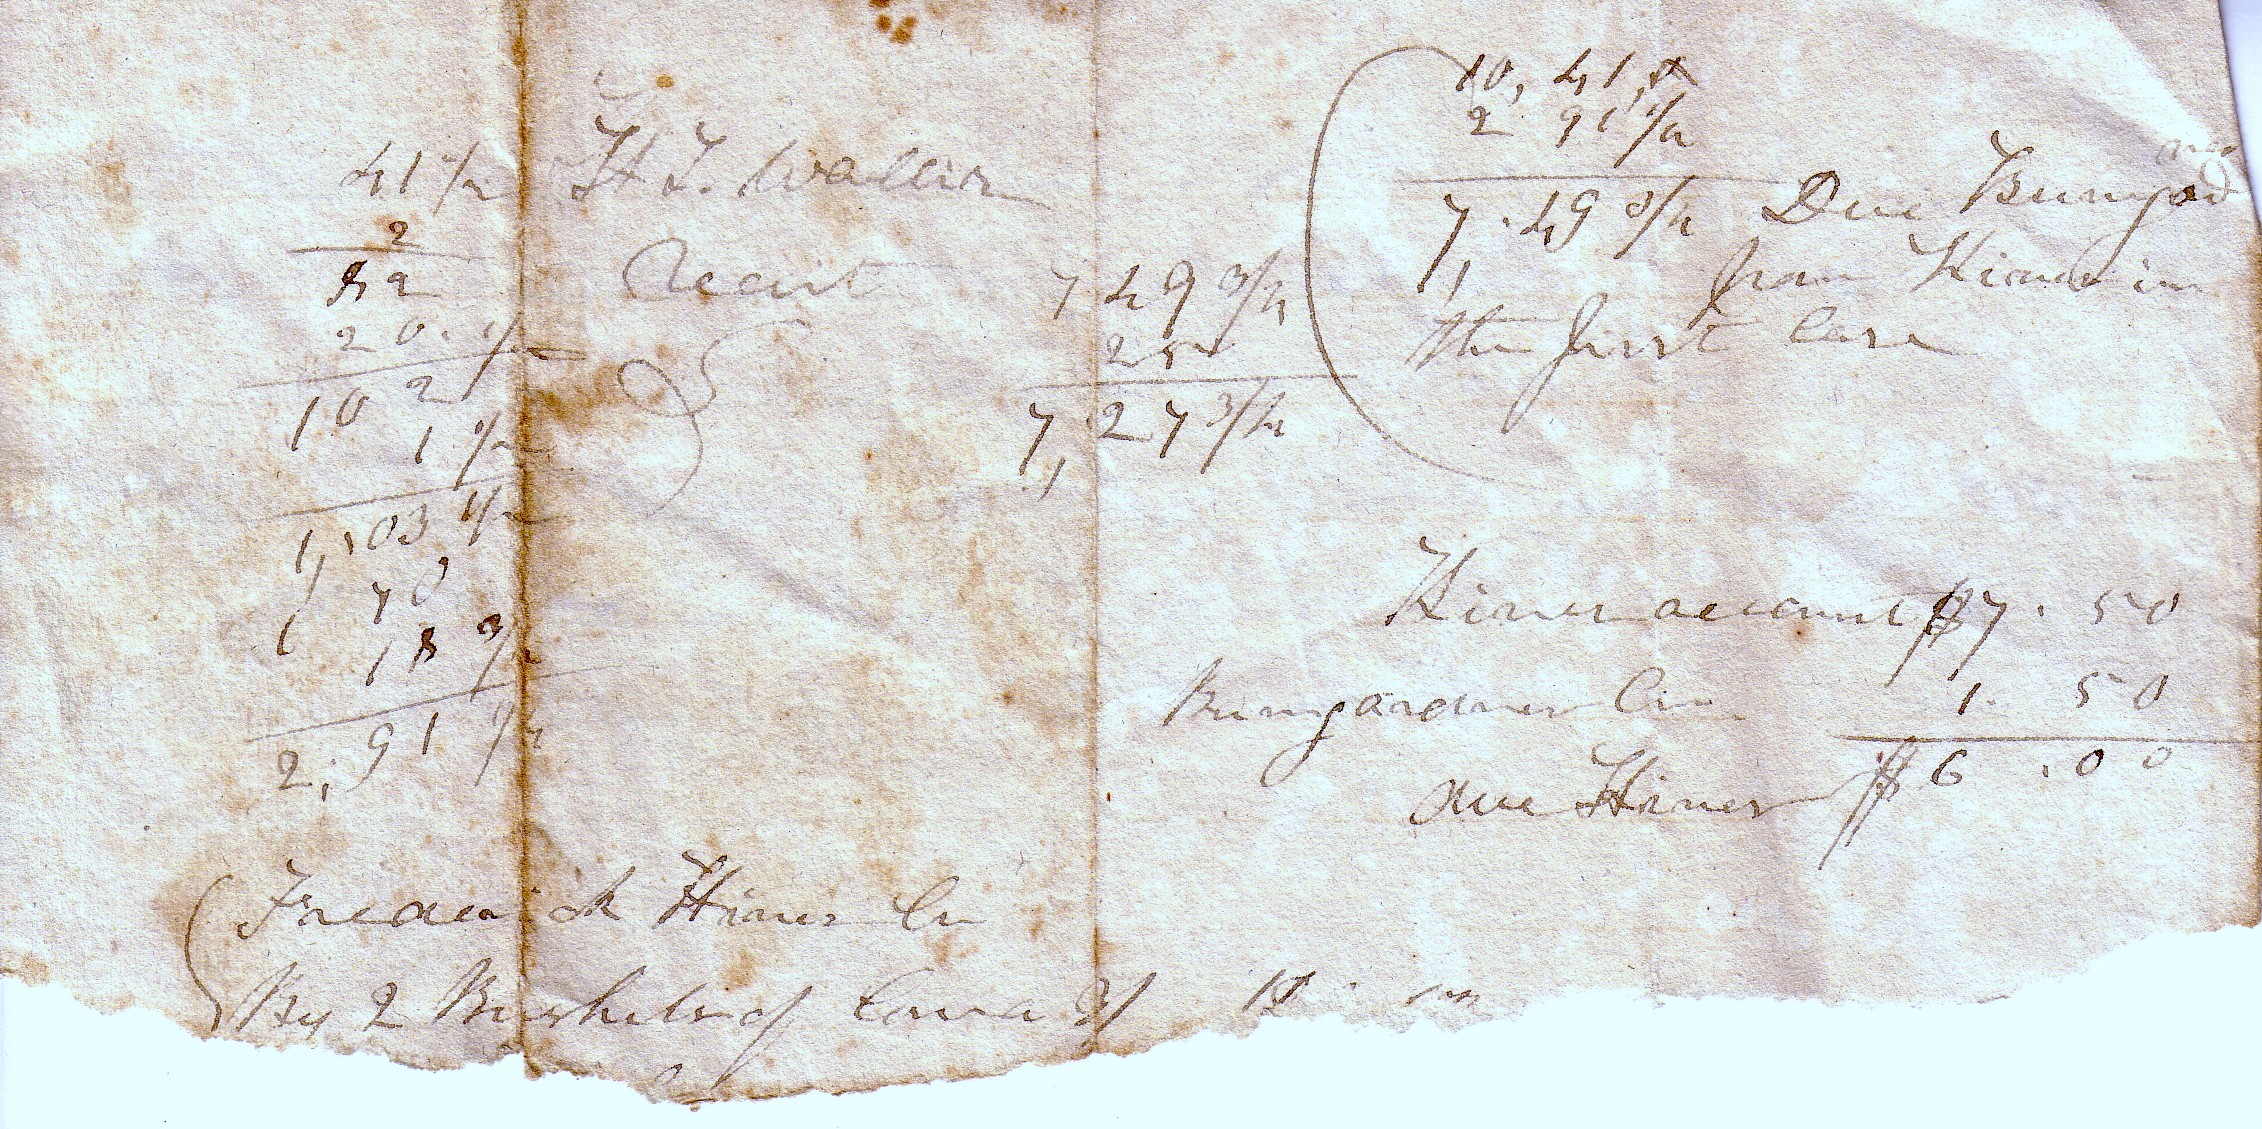 41 1/2
2
82
20. 1/2
102
1 1/2
1,03 1/2
1 70
18 3/4
2,91 1/4
H
Recut
7 49 3/4
7,27 3/4
10, 41,
2 91 1/4
7,49 3/4 Due Bumgard
from Hiner in
the first Case
Hiner account $7.50
Bumgardner Cr. 1.50
due Hiner $6.00
Frederick Hiner Cr
By 2 Bushels of